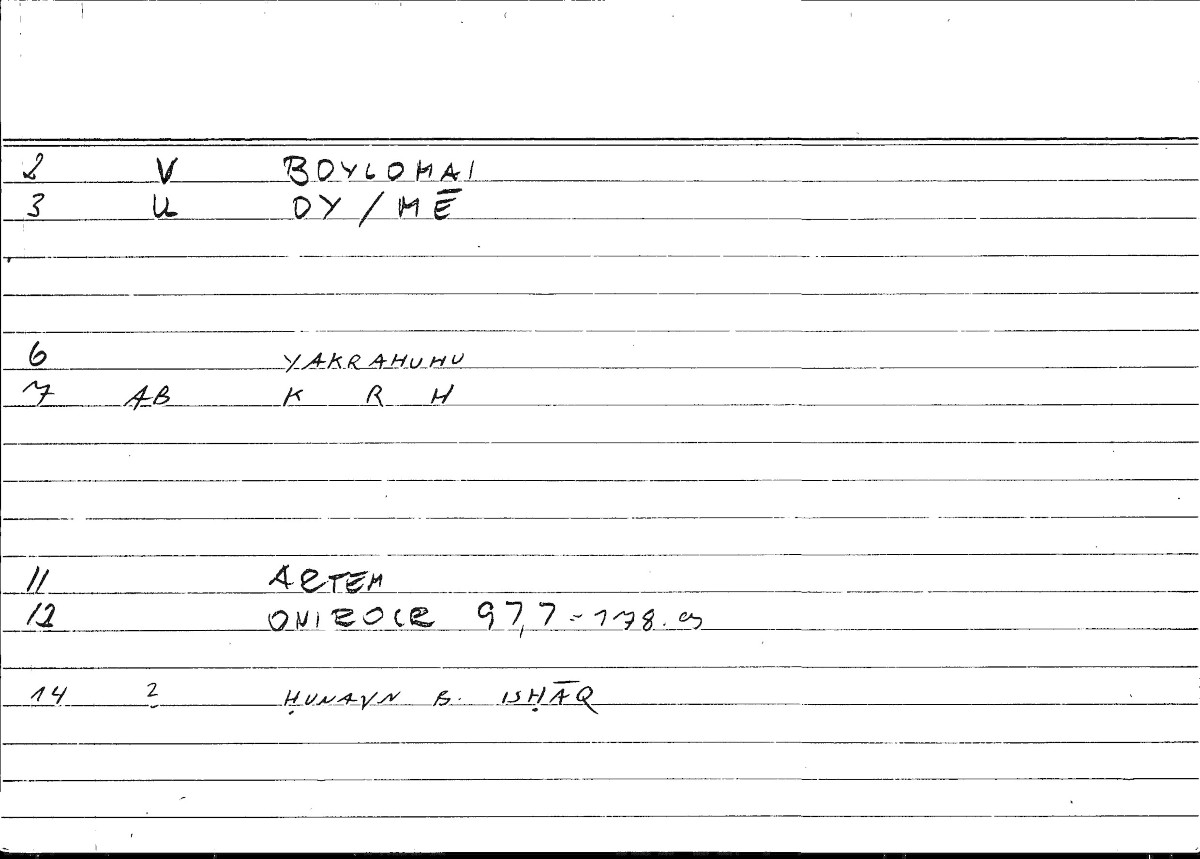 2 V BOYLOMAI
3 U OY / MĒ
6 YAKRAHUHU
7 AB K R H
11 ARTEM
12 ONIROCR 97,7 = 178.9
14 2 ḤUNAYN B. ISḤĀQ